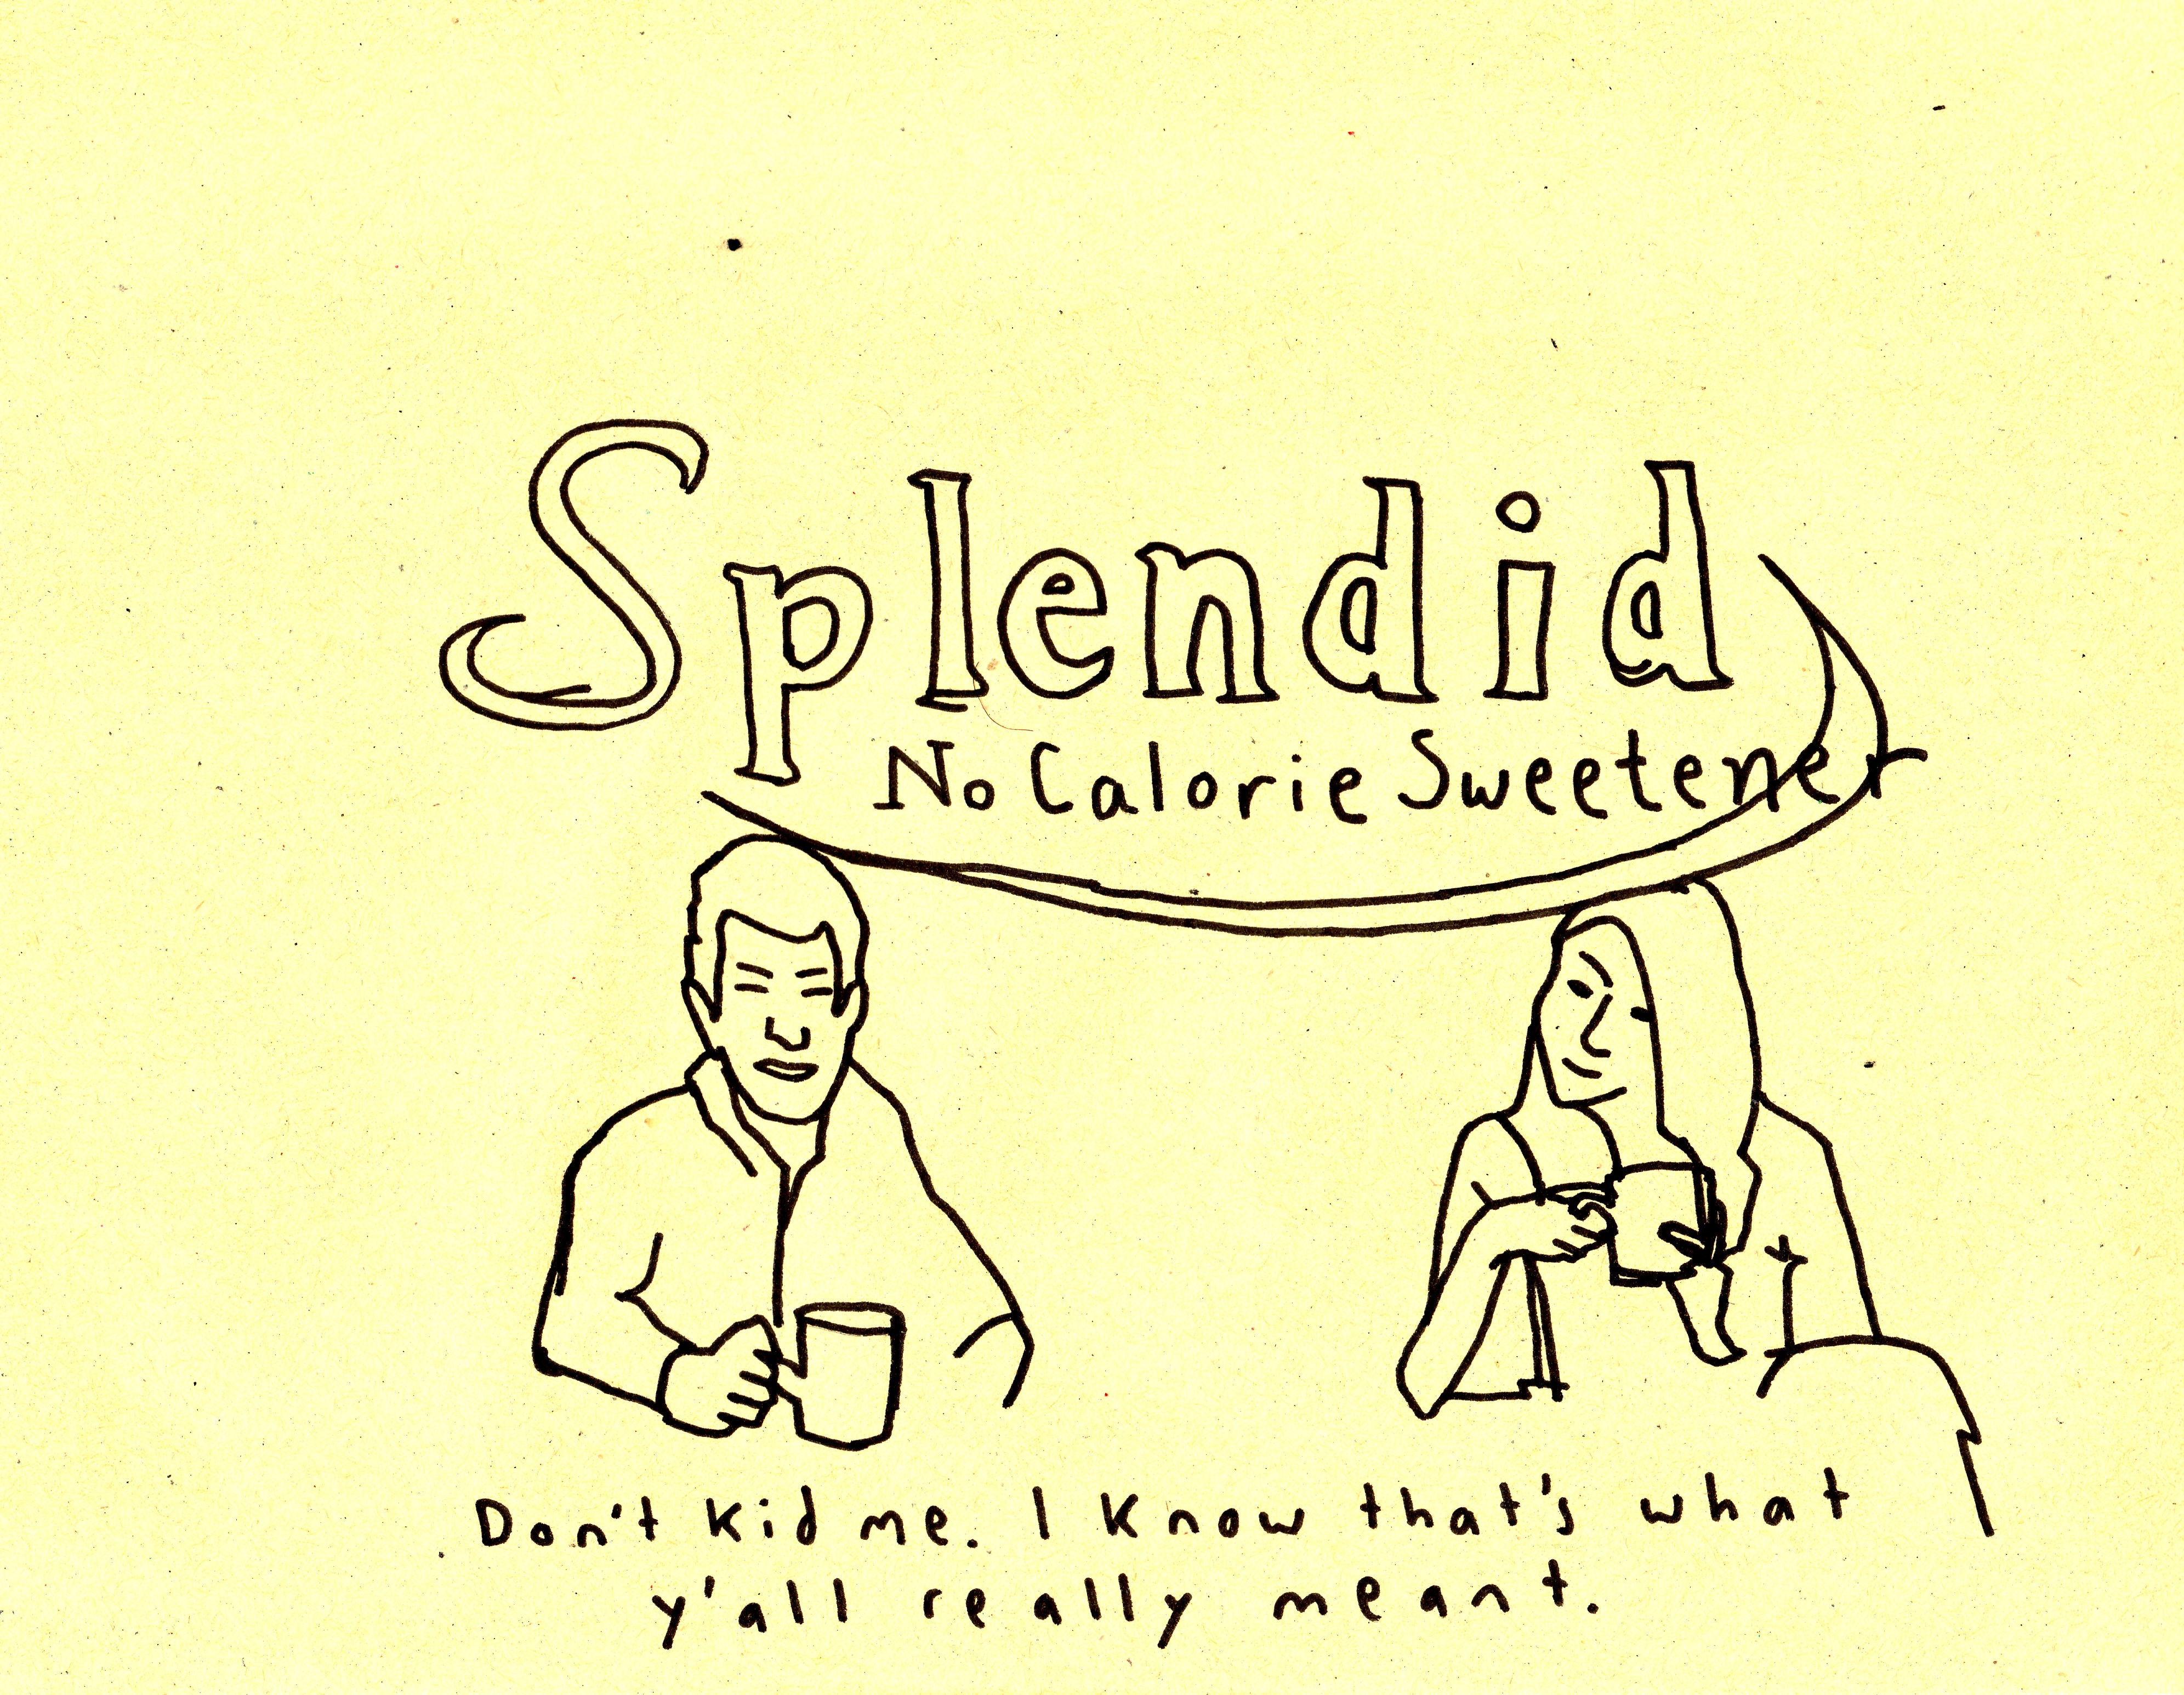 Splendid
No Calorie Sweetener
Don't kid me. I know that's what
y'all really meant.